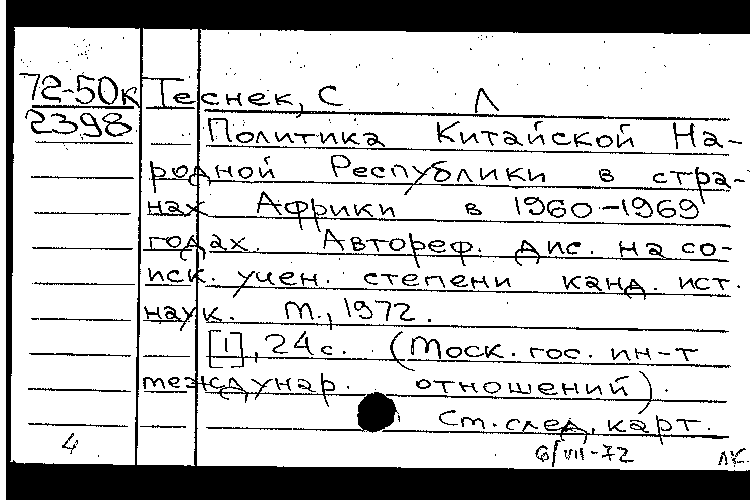 72-50к Теснек, С Л
2398 Политика Китайской На-
родной Республики в стра-
нах Африки в 1960-1969
годах. Автореф. дис. на со-
иск. учен. степени канд. ист.
наук. М., 1972.
[1], 24 с. (Моск. гос. ин-т
междунар. отношений).
См. след. карт.
4 6/VII-72 ЛК